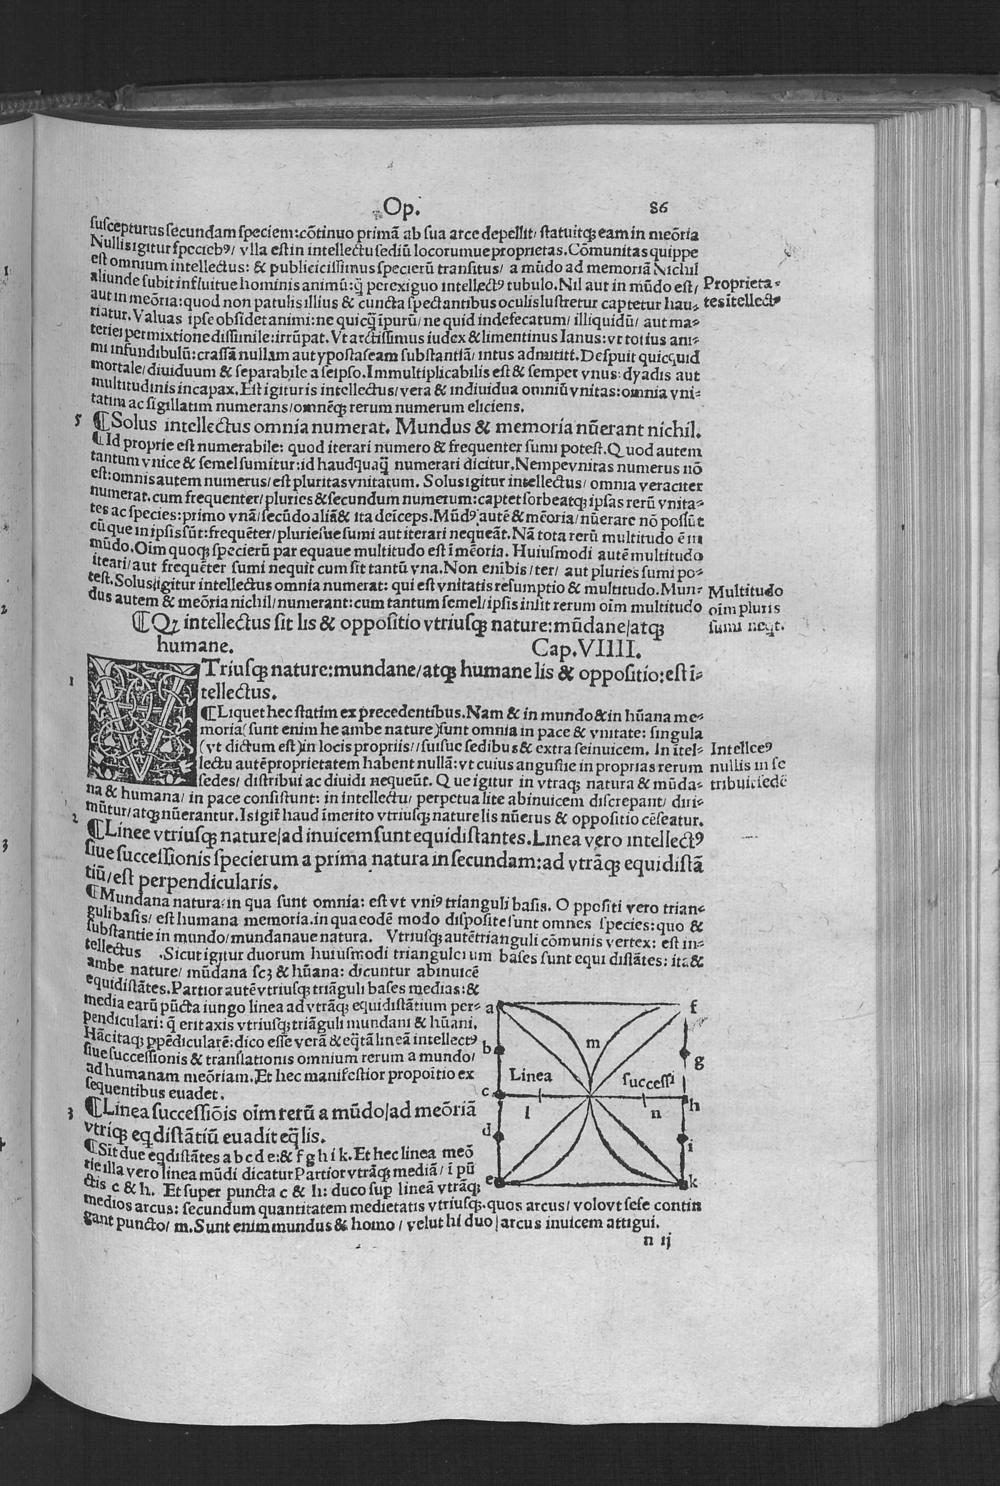 Op.
86
suscepturus secundam speciem: cõtinuo primã ab sua arce depellit/ statuitqꝫ eam in meõria
Nullis igitur speciebꝰ/ vlla est in intellectu sediũ locorumue proprietas. Cõmunitas quippe
1
est omnium intellectus: & publicicissimus specierũ transitus/ a mũdo ad memoriã Nichil
aliunde subit influitue hominis animũ: q̃ perexiguo intellectꝰ tubulo. Nil aut in mũdo est/
Proprieta-
aut in meõria: quod non patulis illius & cuncta spectantibus oculis lustretur captetur hau-
tes intellectꝰ
riatur. Valuas ipse obsidet animi: ne quicq̃ ĩpurũ/ ne quid indefecatum/ illiquidũ/ aut ma-
teriei permixtione dissimile: irrũpat. Vt arctissimus iudex & limentinus Ianus: vt totius ani-
mi infundibulũ: crassã nullam aut ypostaseam substantiã/ intus admittit. Despuit quicquid
mortale/ diuiduum & separabile a seipso. Immultiplicabilis est & semper vnus: dyadis aut
multitudinis incapax. Est igitur is intellectus/ vera & indiuidua omniũ vnitas: omnia vni-
tatim ac sigillatim numerans/ omnẽqꝫ rerum numerum eliciens.
5
¶Solus intellectus omnia numerat. Mundus & memoria nũerant nichil.
¶Id proprie est numerabile: quod iterari numero & frequenter sumi potest. Quod autem
tantum vnice & semel sumitur: id haudquaq̃ numerari dicitur. Nempe vnitas numerus nõ
est: omnis autem numerus/ est pluritas vnitatum. Solus igitur intellectus/ omnia veraciter
numerat. cum frequenter/ pluries & secundum numerum: captet sorbeatqꝫ ipsas rerũ vnita-
tes ac species: primo vnã/ secũdo aliã & ita deĩceps. Mũdꝰ autẽ & mẽoria/ nũerare nõ possũt
cũ que in ipsis sũt: frequẽter/ pluriesue sumi aut iterari nequeãt. Nã tota rerũ multitudo ẽ in
mũdo. Oim quoqꝫ specierũ par equaue multitudo est ĩ mẽoria. Huiusmodi autẽ multitudo
iteari/ aut frequẽter sumi nequit cum sit tantũ vna. Non enĩ bis/ ter/ aut pluries sumi po-
test. Solus igitur intellectus omnia numerat: qui est vnitatis resumptio & multitudo. Mun-
Multitudo
2
dus autem & meõria nichil/ numerant: cum tantum semel/ ipsis insit rerum oim multitudo
oĩm pluris
sumi neqt.
¶Qꝫ intellectus sit lis & oppositio vtriusqꝫ nature: mũdane/ atqꝫ
humane.
Cap. VIIII.
1
VTriusqꝫ nature: mundane/ atqꝫ humane lis & oppositio: est ĩ-
tellectus.
¶Liquet hec statim ex precedentibus. Nam & in mundo & in hũana me-
moria (sunt enim he ambe nature) sunt omnia in pace & vnitate: singula
(vt dictum est) in locis propriis/ suisue sedibus & extra se inuicem. In ĩtel-
Intellcꝰ
lectu autẽ proprietatem habent nullã: vt cuius angustie in proprias rerum
nullis in se
sedes/ distribui ac diuidi nequeũt. Que igitur in vtraqꝫ natura & mũda-
tribuit sedẽ
na & humana/ in pace consistunt: in intellectu/ perpetua lite abinuicem discrepant/ diri-
mũtur/ atqꝫ nũerantur. Is igit̃ haud ĩmerito vtriusqꝫ nature lis nũerus & oppositio cẽseatur.
2
¶Linee vtriusqꝫ nature/ ad inuicem sunt equidistantes. Linea vero intellectꝰ
3
siue successionis specierum a prima natura in secundam: ad vtrãqꝫ equidistã
tiũ/ est perpendicularis.
¶Mundana natura: in qua sunt omnia: est vt vniꝰ trianguli basis. Oppositi vero trian-
guli basis/ est humana memoria. in qua eodẽ modo disposite sunt omnes species: quo &
substantie in mundo/ mundanaue natura. Vtriusqꝫ autẽ trianguli cõmunis vertex: est in-
tellectus. Sicut igitur duorum huiusmodi triangulorum bases sunt equi distãtes: ita &
ambe nature/ mũdana scꝫ & hũana: dicuntur abinuicẽ
equidistãtes. Partior autẽ vtriusqꝫ triãguli bases medias: &
media earũ pũcta iungo linea ad vtrãqꝫ equidistãtium per-
pendiculari: q̃ erit axis vtriusqꝫ triãguli mundani & hũani.
Hãc itaqꝫ ꝑpẽdicularẽ: dico esse verã & eq̃tã lineã intellectꝰ
siue successionis & translationis omnium rerum a mundo/
ad humanam meõriam. Et hec manifestior propoitio ex
sequentibus euadet.
3
¶Linea successiõis oim rerũ a mũdo/ ad meõriã
vtriqꝫ eqdistãtiũ euadit eq̃lis.
¶Sit due eqdistãtes a b c d e: & f g h i k. Et hec linea meõ
rie illa vero linea mũdi dicatur Partior vtrãqꝫ mediã/ ĩ pũ
ctis c & h. Et super puncta c & h: duco sup lineã vtrãqꝫ
medios arcus: secundum quantitatem medietatis vtriusqꝫ. quos arcus/ volo vt sese contin
gant puncto/ m. Sunt enim mundus & homo/ velut hi duo/ arcus inuicem attigui.
a
f
m
b
g
Linea
successi
c
h
l
n
d
i
e
k
n ij